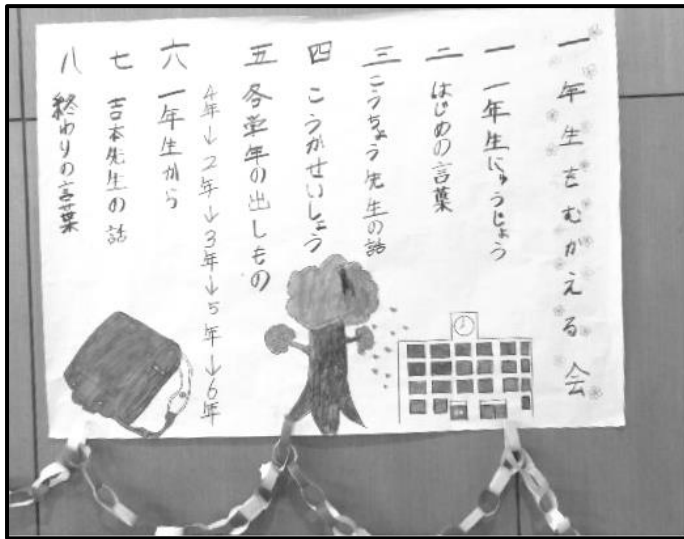 一年生をむかえる会
一 一年生にゅうじょう
二 はじめの言葉
三 こうちょう先生の話
四 こうかせいしょう
五 各学年の出しもの
4年→2年→3年→5年→6年
六 一年生から
七 吉本先生の話
八 終わりの言葉